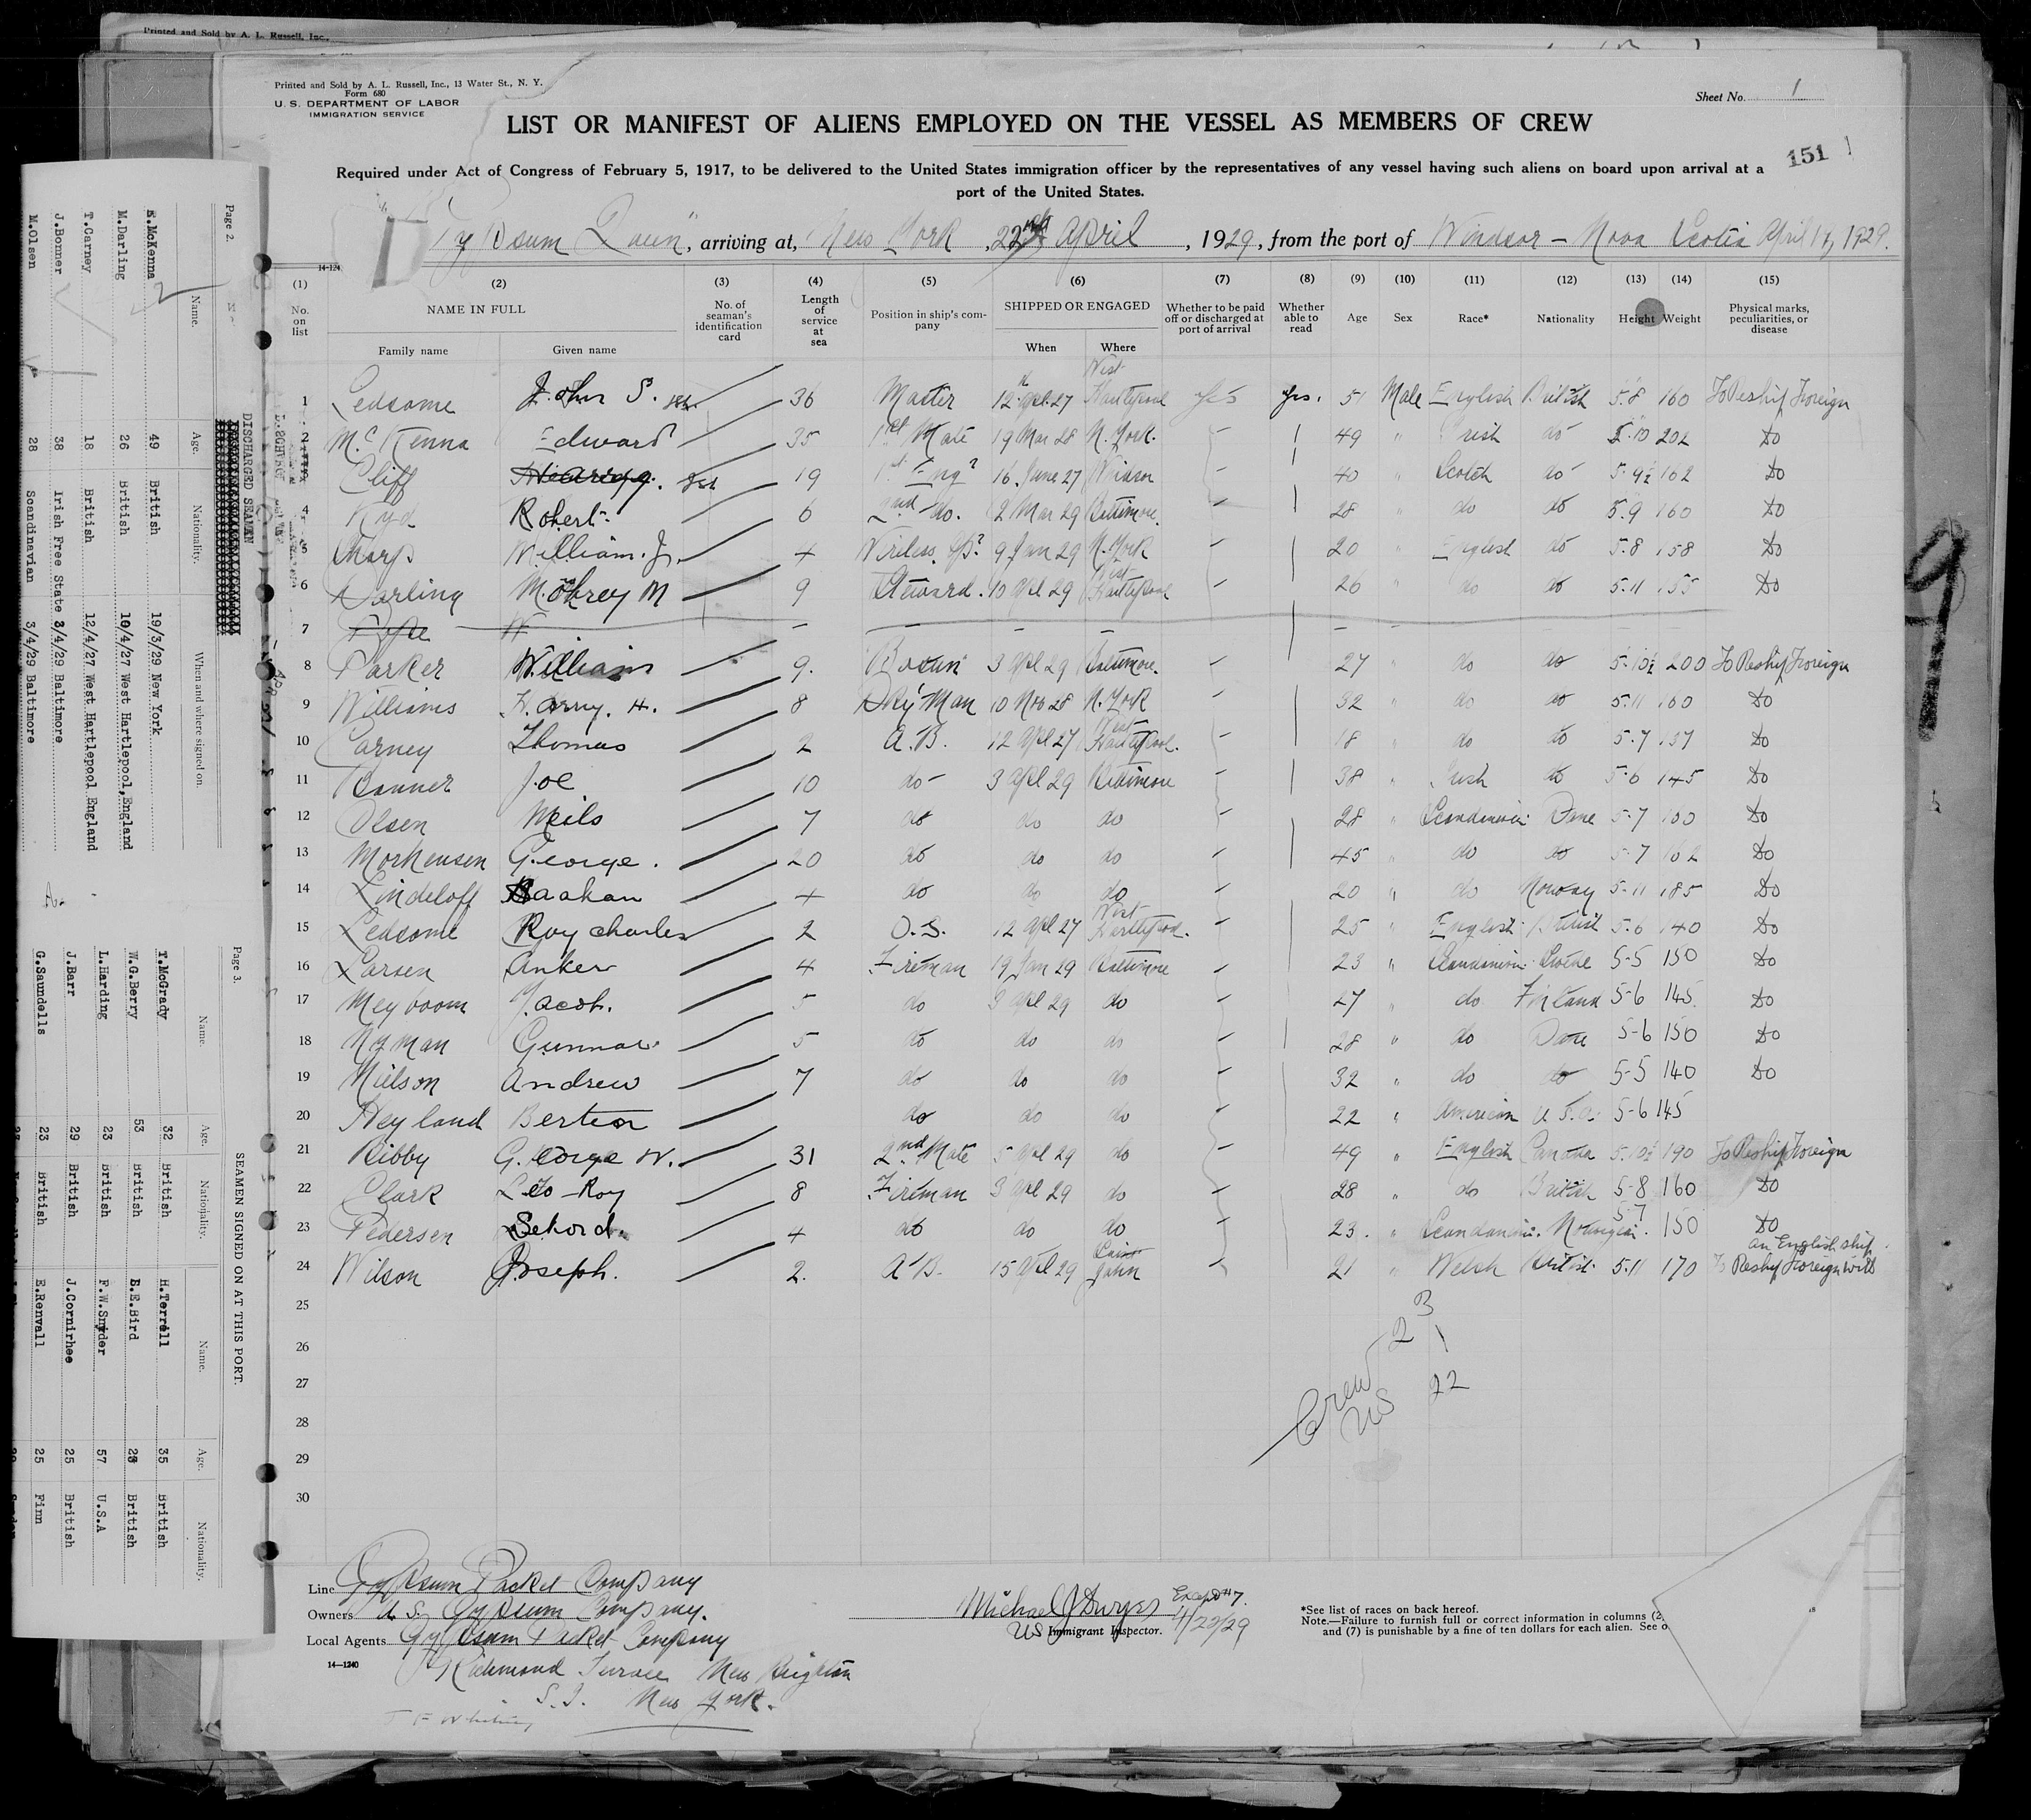 Printed and Sold by A. L. Russell, Inc.,
Printed and Sold by A. L. Russell, Inc., 13 Water St., N. Y.
Form 680
U. S. DEPARTMENT OF LABOR
IMMIGRATION SERVICE
Sheet No. 1
LIST OR MANIFEST OF ALIENS EMPLOYED ON THE VESSEL AS MEMBERS OF CREW
151
Required under Act of Congress of February 5, 1917, to be delivered to the United States immigration officer by the representatives of any vessel having such aliens on board upon arrival at a
port of the United States.
Gypsum Queen", arriving at, New York, 22nd April, 1929, from the port of Windsor - Nova Scotia April 17, 1929.
14-124
(1) (2) (3) (4) (5) (6) (7) (8) (9) (10) (11) (12) (13) (14) (15)
No. on list
NAME IN FULL
Family name Given name
No. of seaman's identification card
Length of service at sea
Position in ship's company
SHIPPED OR ENGAGED
When Where
Whether to be paid off or discharged at port of arrival
Whether able to read
Age Sex Race* Nationality Height Weight
Physical marks, peculiarities, or disease
1 Ledsome John S. 36 Master 12 Apl 27 West Hartlepool Yes yes. 51 Male English British 5.8 160 To Reship Foreign
2 McKenna Edward 35 1st Mate 19 Mar 28 N. York. 49 " Irish do 5.10 202 Do
3 Cliff 19 1st Eng 16 June 27 Windsor 40 " Scotch do 5-9½ 162 Do
4 Kyd Robert 6 2nd do. 2 Mar 29 Baltimore. 28 " do do 5.9 160 Do
5 Sharp William. J. 4 Wireless Op 9 Jan 29 N. York 20 " English do 5.8 158 Do
6 Darling M 9 Steward. 10 Apl 29 West Hartlepool 26 " do do 5.11 155 Do
7 Pope W — — —
8 Parker William 9. Bosun 3 Apl 29 Baltimore. 27 " do do 5-10½ 200 To Reship Foreign
9 Williams Harry. H. 8 Dky Man 10 Nov 28 N. York 32 " do do 5.11 160 Do
10 Carney Thomas 2 A.B. 12 Apl 27 West Hartlepool. 18 " do do 5.7 137 Do
11 Bonner Joe 10 do 3 Apl 29 Baltimore 38 " Irish do 5.6 145 Do
12 Olsen Meils 7 do do do 28 " Scandanivin Dane 5-7 160 Do
13 Morkensen George. 20 do do do 45 " do do 5-7 162 Do
14 Lindeloff Haakan 4 do do do 20 " do Norway 5-11 185 Do
15 Ledsome Roy Charles 2 O.S. 12 Apl 27 West Hartlepool. 25 " English British 5.6 140 Do
16 Larsen Anker 4 Fireman 19 Jan 29 Baltimore 23 " Scandanivin 5-5 150 Do
17 Meyboom Jacob. 5 do 3 Apl 29 do 27 " do Finland 5-6 145 Do
18 Nyman Gunnar 5 do do do 28 " do Dane 5-6 150 Do
19 Nielson Andrew 7 do do do 32 " do do 5-5 140 Do
20 Heyland Berton do do do 22 " American U.S.A. 5-6 145
21 Bibby George W. 31 2nd Mate 5 Apl 29 do 49 " English Canada 5.10½ 190 To Reship Foreign
22 Clark Leo-Roy 8 Fireman 3 Apl 29 do 28 " do British 5-8 160 Do
23 Pedersen 4 do do do 23. " Scandanivin. Norwegian. 5-7 150 Do
24 Wilson Joseph. 2. A B. 15 Apl 29 John 21 " Welsh British 5.11 170 To Reship Foreign with an English ship.
25
26
27
28
29
30
23
1
Crew 22
US
9
Line Gypsum Packet Company
Owners U. S. Gypsum Company.
Local Agents Gypsum Packet Company
14—1240
Richmond Terrace New Brighton
S. I. New York.
Michael J Dwyer Except #7.
US Immigrant Inspector. 4/22/29
*See list of races on back hereof.
Note.—Failure to furnish full or correct information in columns (2,
and (7) is punishable by a fine of ten dollars for each alien. See o
Page 2.
DISCHARGED SEAMAN
Name. Age. Nationality. When and where signed on.
E.McKenna 49 British 19/3/29 New York
M.Darling 26 British 10/4/27 West Hartlepool,England
T.Carney 18 British 12/4/27 West Hartlepool England
J.Bonner 38 Irish Free State 3/4/29 Baltimore
M.Olsen 28 Scandinavian 3/4/29 Baltimore
Page 3.
SEAMEN SIGNED ON AT THIS PORT.
Name. Age. Nationality. Name. Age. Nationality.
T.McGrady 32 British H.Terrell 35 British
W.G.Berry 53 British B.E.Bird 23 British
L.Harding 23 British F.W.Snyder 57 U.S.A
J.Barr 29 British J.Cornirhee 25 British
G.Saundells 23 British E.Renvall 25 Finn